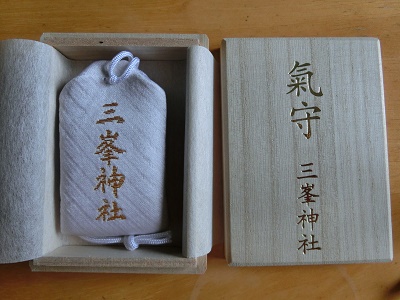 三峯神社
氣守
三峯神社